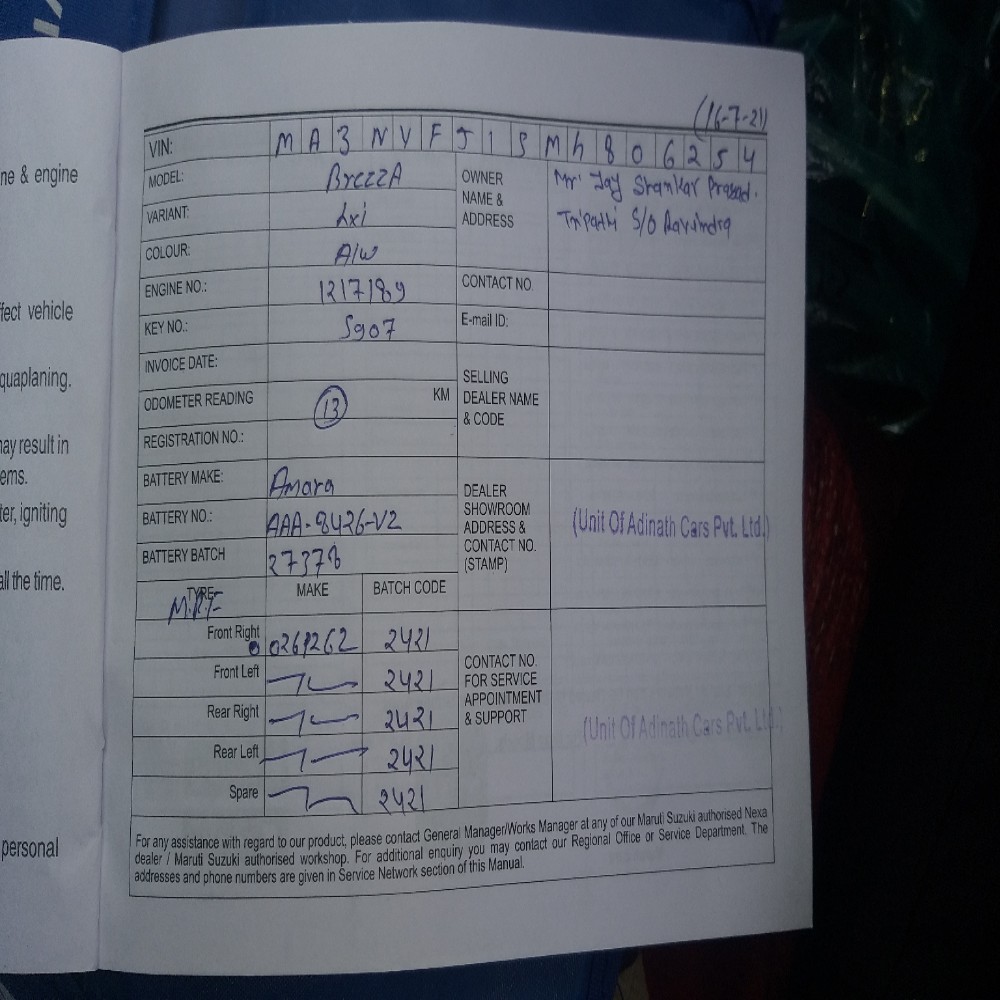 ne & engine
fect vehicle
quaplaning.
may result in
ems.
ter, igniting
all the time.
personal
(16-7-21)
VIN: MA3NYFJ1SMH806254
MODEL: BrezzA
VARIANT: Lxi
COLOUR: A/W
ENGINE NO.: 1217189
KEY NO.: 5907
INVOICE DATE:
ODOMETER READING 13 KM
REGISTRATION NO.:
BATTERY MAKE: Amara
BATTERY NO.: AAA-8426-V2
BATTERY BATCH 27378
TYRE MAKE BATCH CODE
MRF
Front Right 2421
Front Left 2421
Rear Right 2421
Rear Left 2421
Spare 2421
OWNER NAME & ADDRESS
Mr Jay Shankar Prasad.
Tripathi S/O Ravindra
CONTACT NO.
E-mail ID:
SELLING
DEALER NAME
& CODE
DEALER
SHOWROOM
ADDRESS &
CONTACT NO.
(STAMP)
(Unit Of Adinath Cars Pvt. Ltd.)
CONTACT NO.
FOR SERVICE
APPOINTMENT
& SUPPORT
(Unit Of Adinath Cars Pvt. Ltd.)
For any assistance with regard to our product, please contact General Manager/Works Manager at any of our Maruti Suzuki authorised Nexa
dealer / Maruti Suzuki authorised workshop. For additional enquiry you may contact our Regional Office or Service Department. The
addresses and phone numbers are given in Service Network section of this Manual.